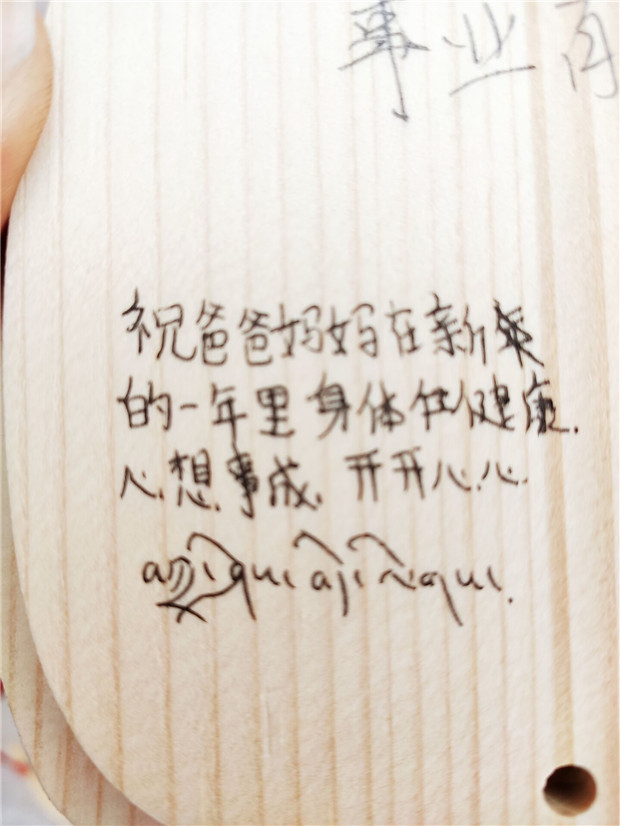 事业有
祝爸爸妈妈在新
的一年里身体健康.
心想事成. 开开心心.